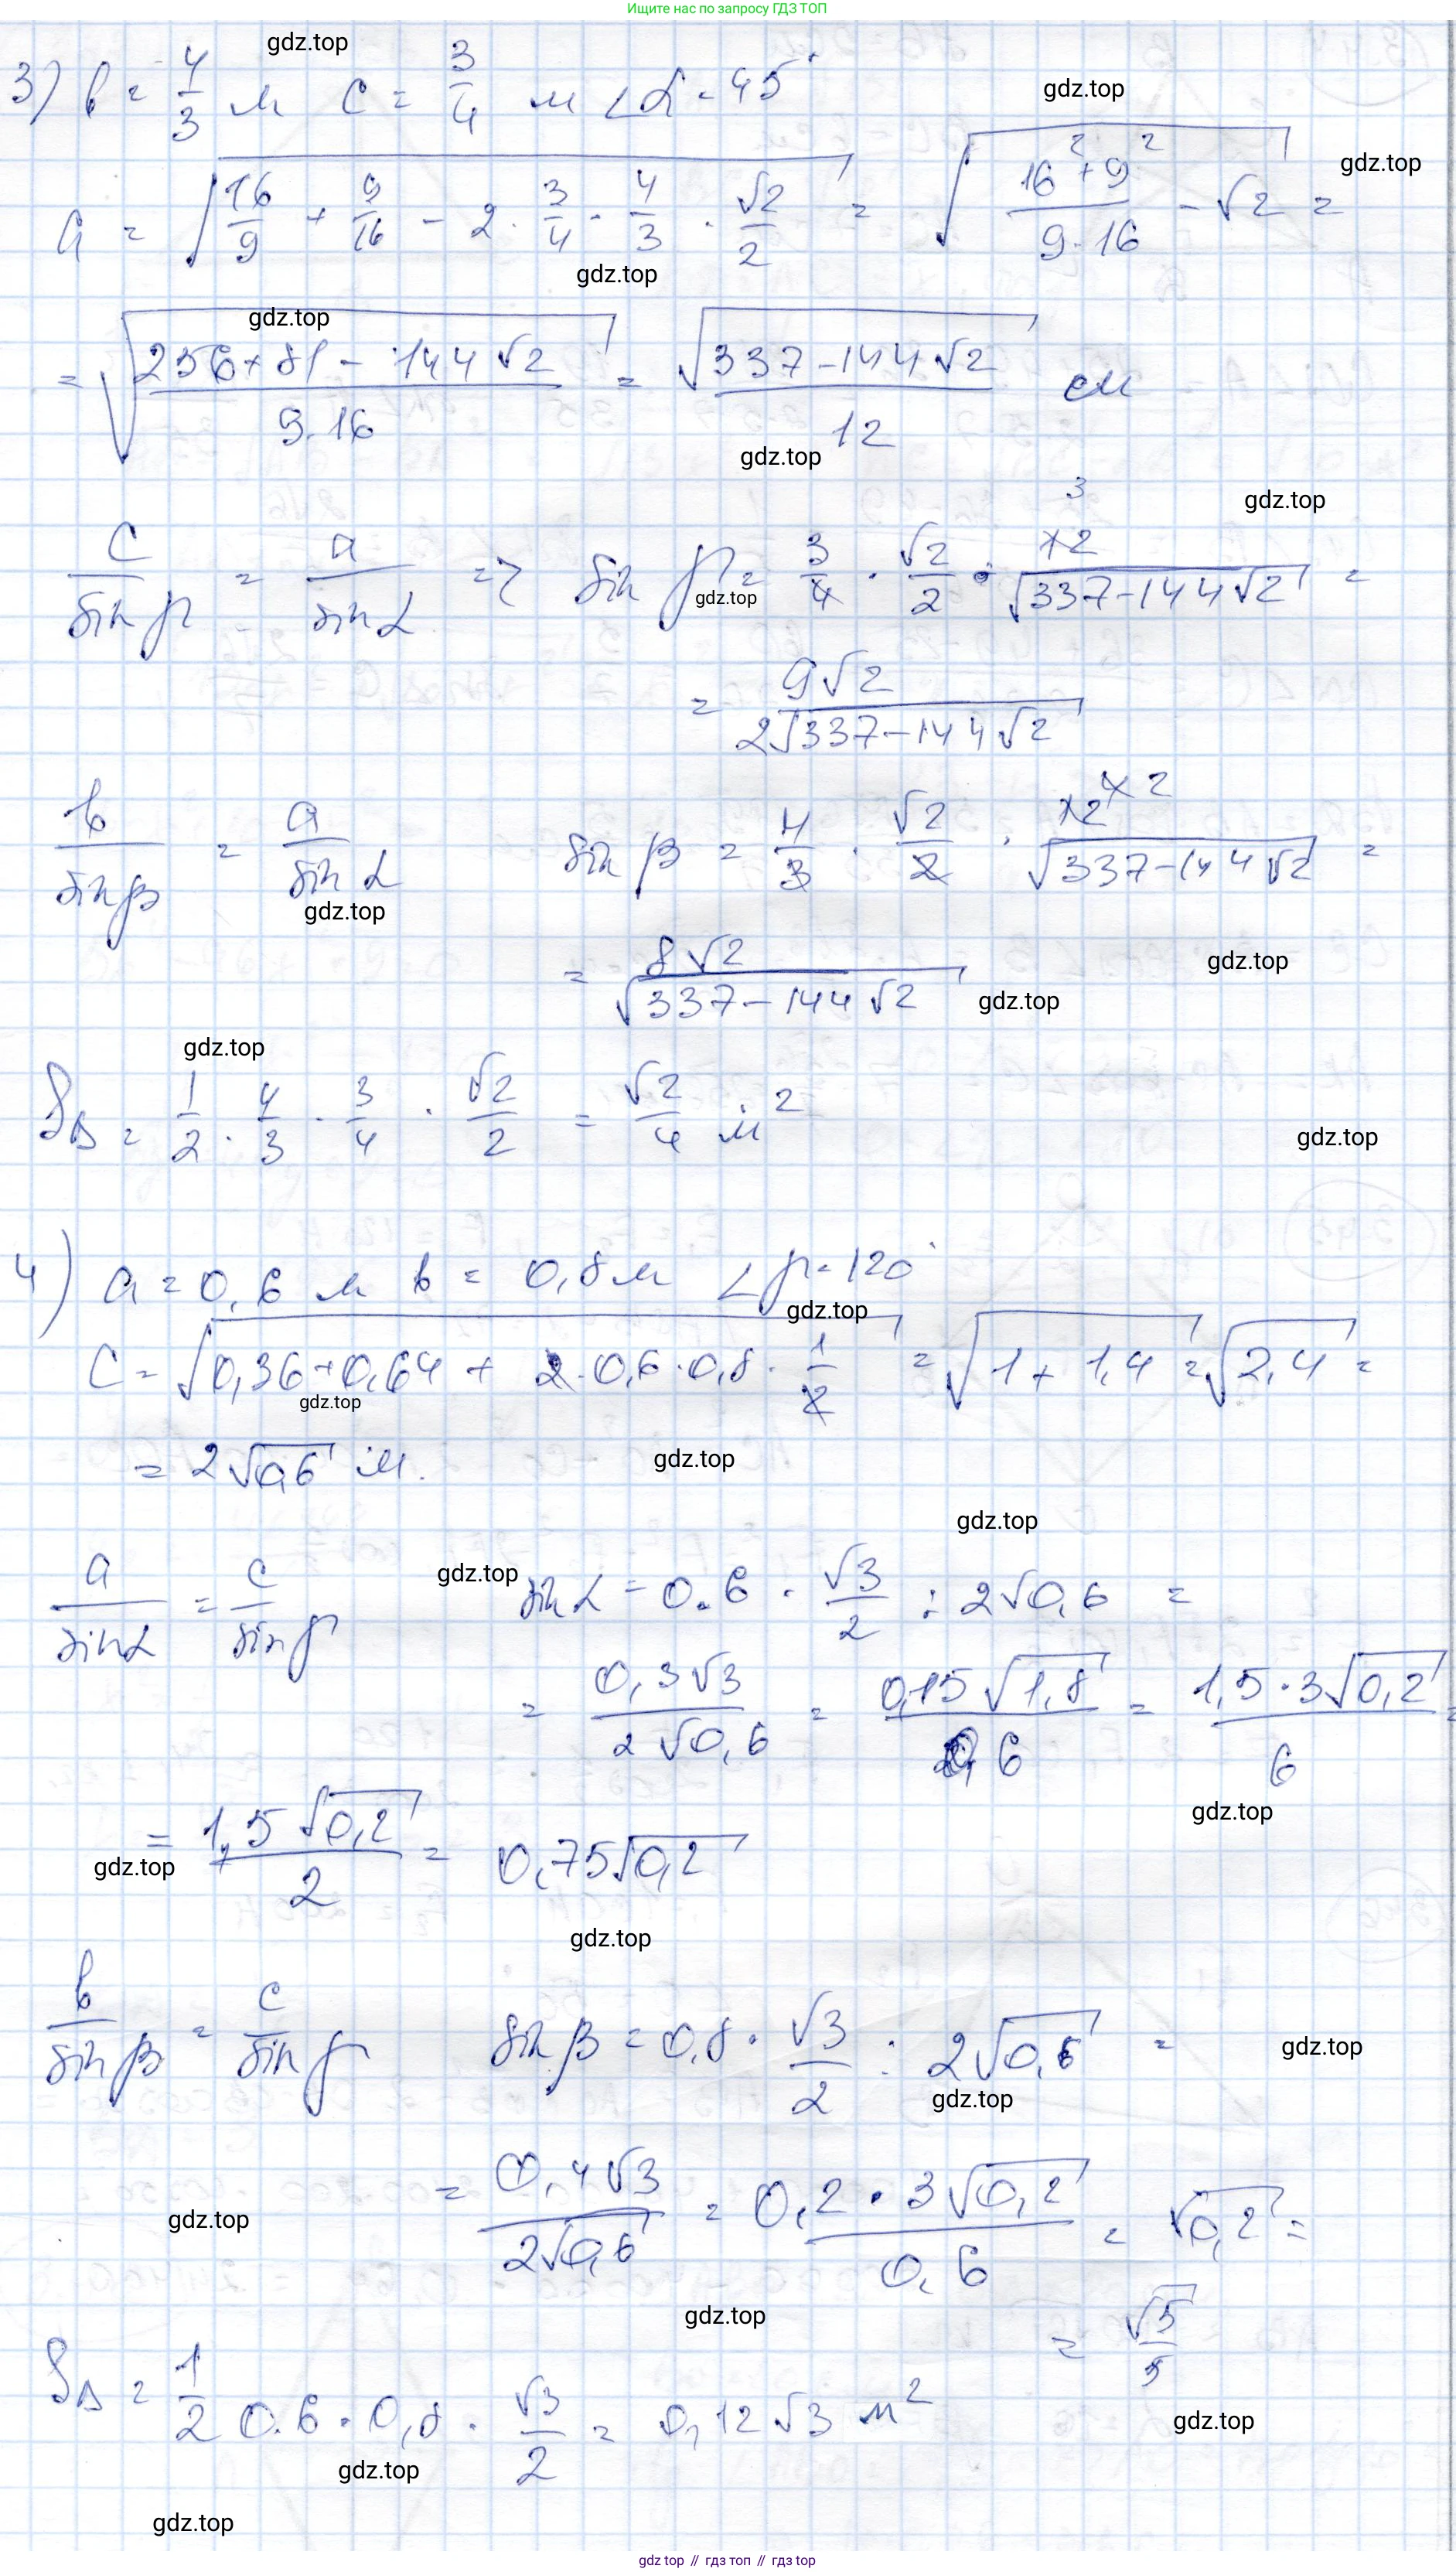 Ищите нас по запросу ГДЗ ТОП
gdz.top
3) b = 4/3 м c = 3/4 м ∠α = 45°
gdz.top
gdz.top
a = √(16/9 + 9/16 - 2 · 3/4 · 4/3 · √2/2) = √((16² + 9²)/(9·16) - √2) =
gdz.top
gdz.top
= √((256 + 81 - 144√2)/(9·16)) = √(337 - 144√2)/12 см
gdz.top
gdz.top
c/sin γ = a/sin α => sin γ = 3/4 · √2/2 · 12/√(337 - 144√2) =
3
gdz.top
= 9√2/(2√(337 - 144√2))
b/sin β = a/sin α sin β = 4/3 · √2/2 · 12/√(337 - 144√2) =
gdz.top
= 8√2/√(337 - 144√2)
gdz.top
gdz.top
gdz.top
S∆ = 1/2 · 4/3 · 3/4 · √2/2 = √2/4 м²
gdz.top
4) a = 0,6 м b = 0,8 м ∠γ = 120°
gdz.top
c = √(0,36 + 0,64 + 2·0,6·0,8·1/2) = √(1 + 1,4) = √2,4 =
gdz.top
= 2√0,6 м.
gdz.top
gdz.top
gdz.top
a/sin α = c/sin γ sin α = 0.6 · √3/2 : 2√0,6 =
= 0,3√3/(2√0,6) = 0,15√1,8/0,6 = 1,5·3√0,2/6 =
gdz.top
= 1,5√0,2/2 = 0,75√0,2
gdz.top
gdz.top
b/sin β = c/sin γ sin β = 0,8 · √3/2 : 2√0,6 =
gdz.top
gdz.top
= 0,4√3/(2√0,6) = 0,2 · 3√0,2/0,6 = √0,2 =
gdz.top
gdz.top
= √5/5
S∆ = 1/2 0.6 · 0,8 · √3/2 = 0,12√3 м²
gdz.top
gdz.top
gdz.top
gdz top // гдз топ // гдз top